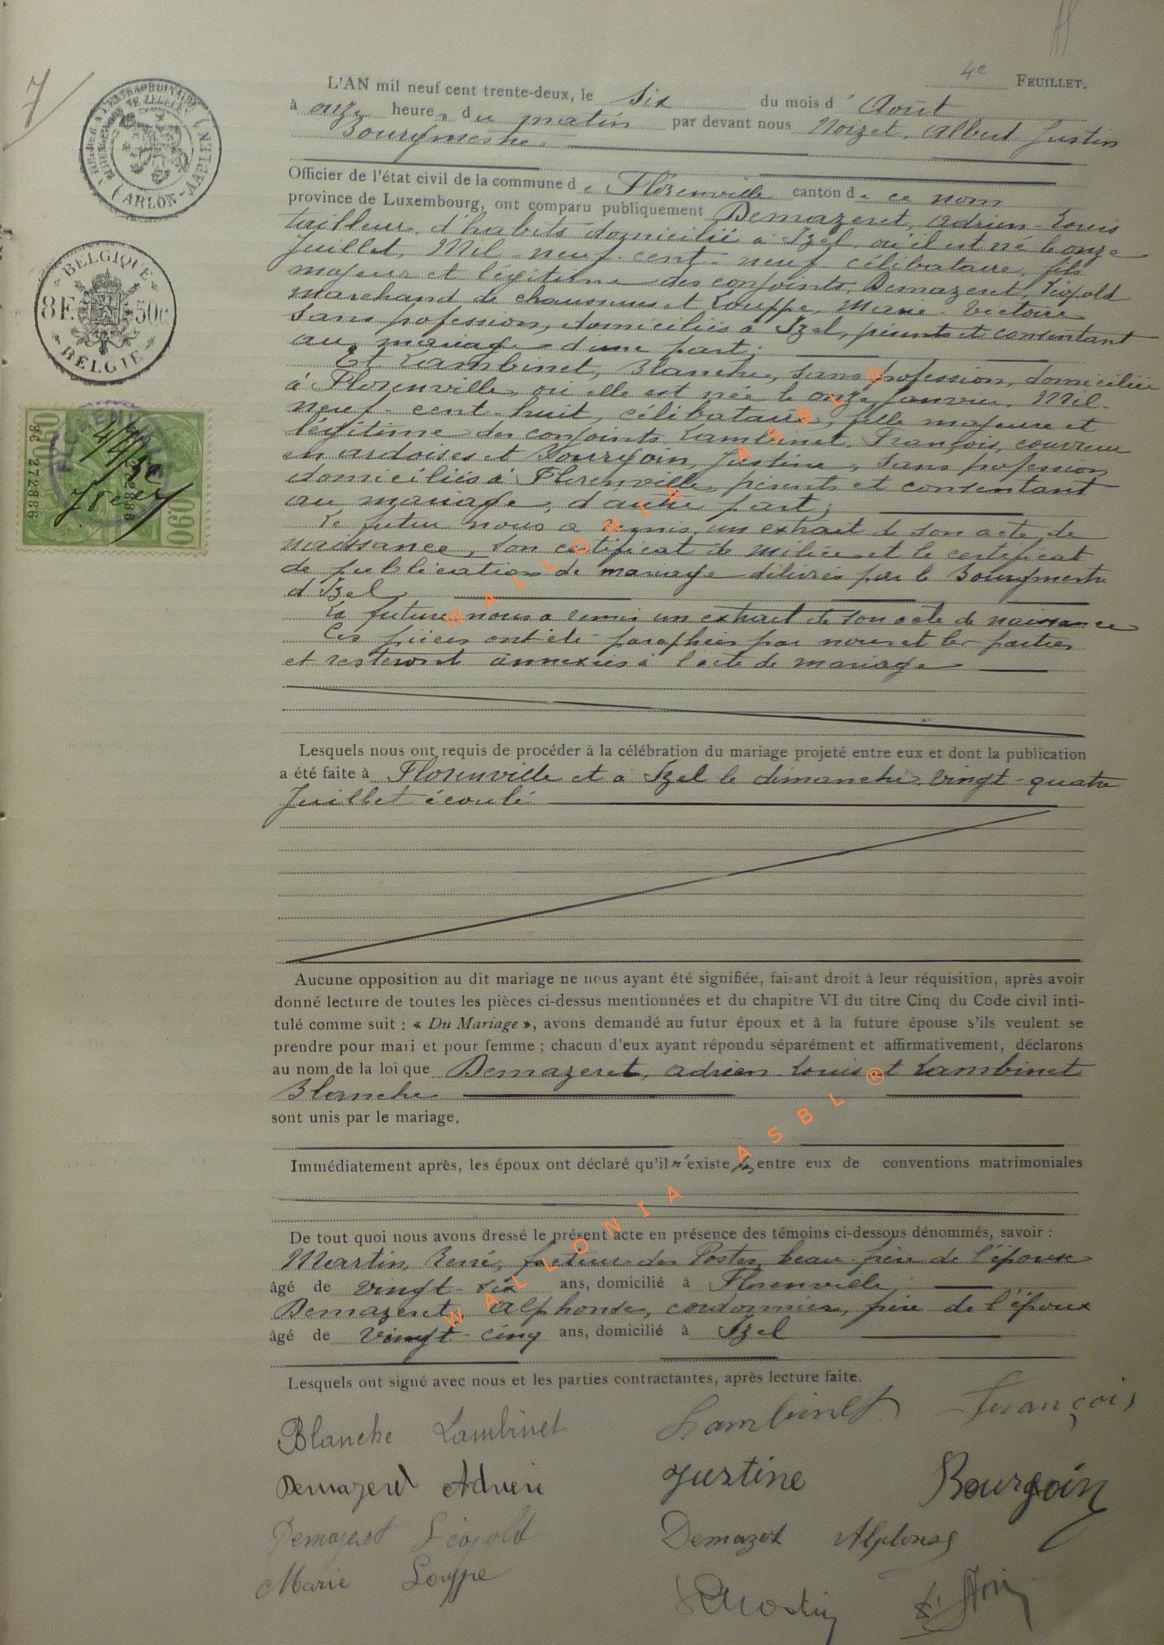 7
4e FEUILLET.
L'AN mil neuf cent trente-deux, le six du mois d'Août
à onze heures du matin par devant nous Noizet, Albert Justin
Bourgmestre
Officier de l'état civil de la commune de Florenville canton de ce nom
province de Luxembourg, ont comparu publiquement Demazeret, Adrien Louis
tailleur d'habits domicilié à Izel, où il est né le onze
Juillet, Mil neuf cent neuf célibataire, fils
majeur et légitime des conjoints Demazeret, Léopold
marchand de chaussures et Louppe, Marie Victoire
sans profession, domiciliés à Izel, présents et consentant
au mariage d'une part;
Et Lambinet, Blanche, sans profession, domiciliée
à Florenville, où elle est née le onze Janvier, Mil-
neuf cent huit, célibataire, fille majeure et
légitime des conjoints Lambinet, François, couvreur
en ardoises et Bourgoin, Justine, sans profession
domiciliés à Florenville, présents et consentant
au mariage, d'autre part;
Le futur nous a remis un extrait de son acte de
naissance, son certificat de milice et le certificat
de publication de mariage délivrés par le Bourgmestre
d'Izel
La future nous a remis un extrait de son acte de naissance
Ces pièces ont été paraphées par nous et les parties
et resteront annexées à l'acte de mariage
Lesquels nous ont requis de procéder à la célébration du mariage projeté entre eux et dont la publication
a été faite à Florenville et à Izel le dimanche vingt-quatre
Juillet écoulé
Aucune opposition au dit mariage ne nous ayant été signifiée, faisant droit à leur réquisition, après avoir
donné lecture de toutes les pièces ci-dessus mentionnées et du chapitre VI du titre Cinq du Code civil inti-
tulé comme suit : « Du Mariage », avons demandé au futur époux et à la future épouse s'ils veulent se
prendre pour mari et pour femme ; chacun d'eux ayant répondu séparément et affirmativement, déclarons
au nom de la loi que Demazeret, Adrien Louis et Lambinet
Blanche
sont unis par le mariage.
Immédiatement après, les époux ont déclaré qu'il n'existe pas entre eux de conventions matrimoniales
De tout quoi nous avons dressé le présent acte en présence des témoins ci-dessous dénommés, savoir :
Martin, René, facteur des Postes, beau-frère de l'épouse
âgé de vingt-six ans, domicilié à Florenville
Demazeret, Alphonse, cordonnier, frère de l'époux
âgé de vingt-cinq ans, domicilié à Izel
Lesquels ont signé avec nous et les parties contractantes, après lecture faite.
Blanche Lambinet Lambinet François
Demazeret Adrien Justine Bourgoin
Demazeret Léopold Demazet Alphonse
Marie Louppe
ARLON-AARLEN
BELGIQUE
8F. 50c
BELGIE
WALLONIA ASBL ®
WALLONIA ASBL ®